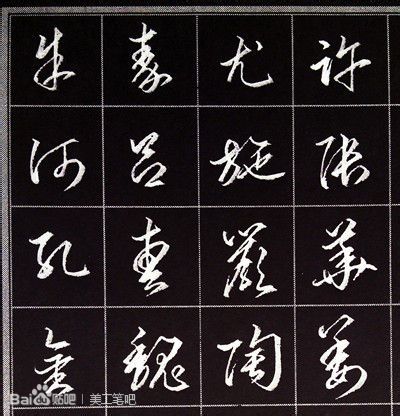 朱秦尤許
何呂施張
孔曹嚴華
金魏陶姜
Bai du 贴吧 | 美工笔吧